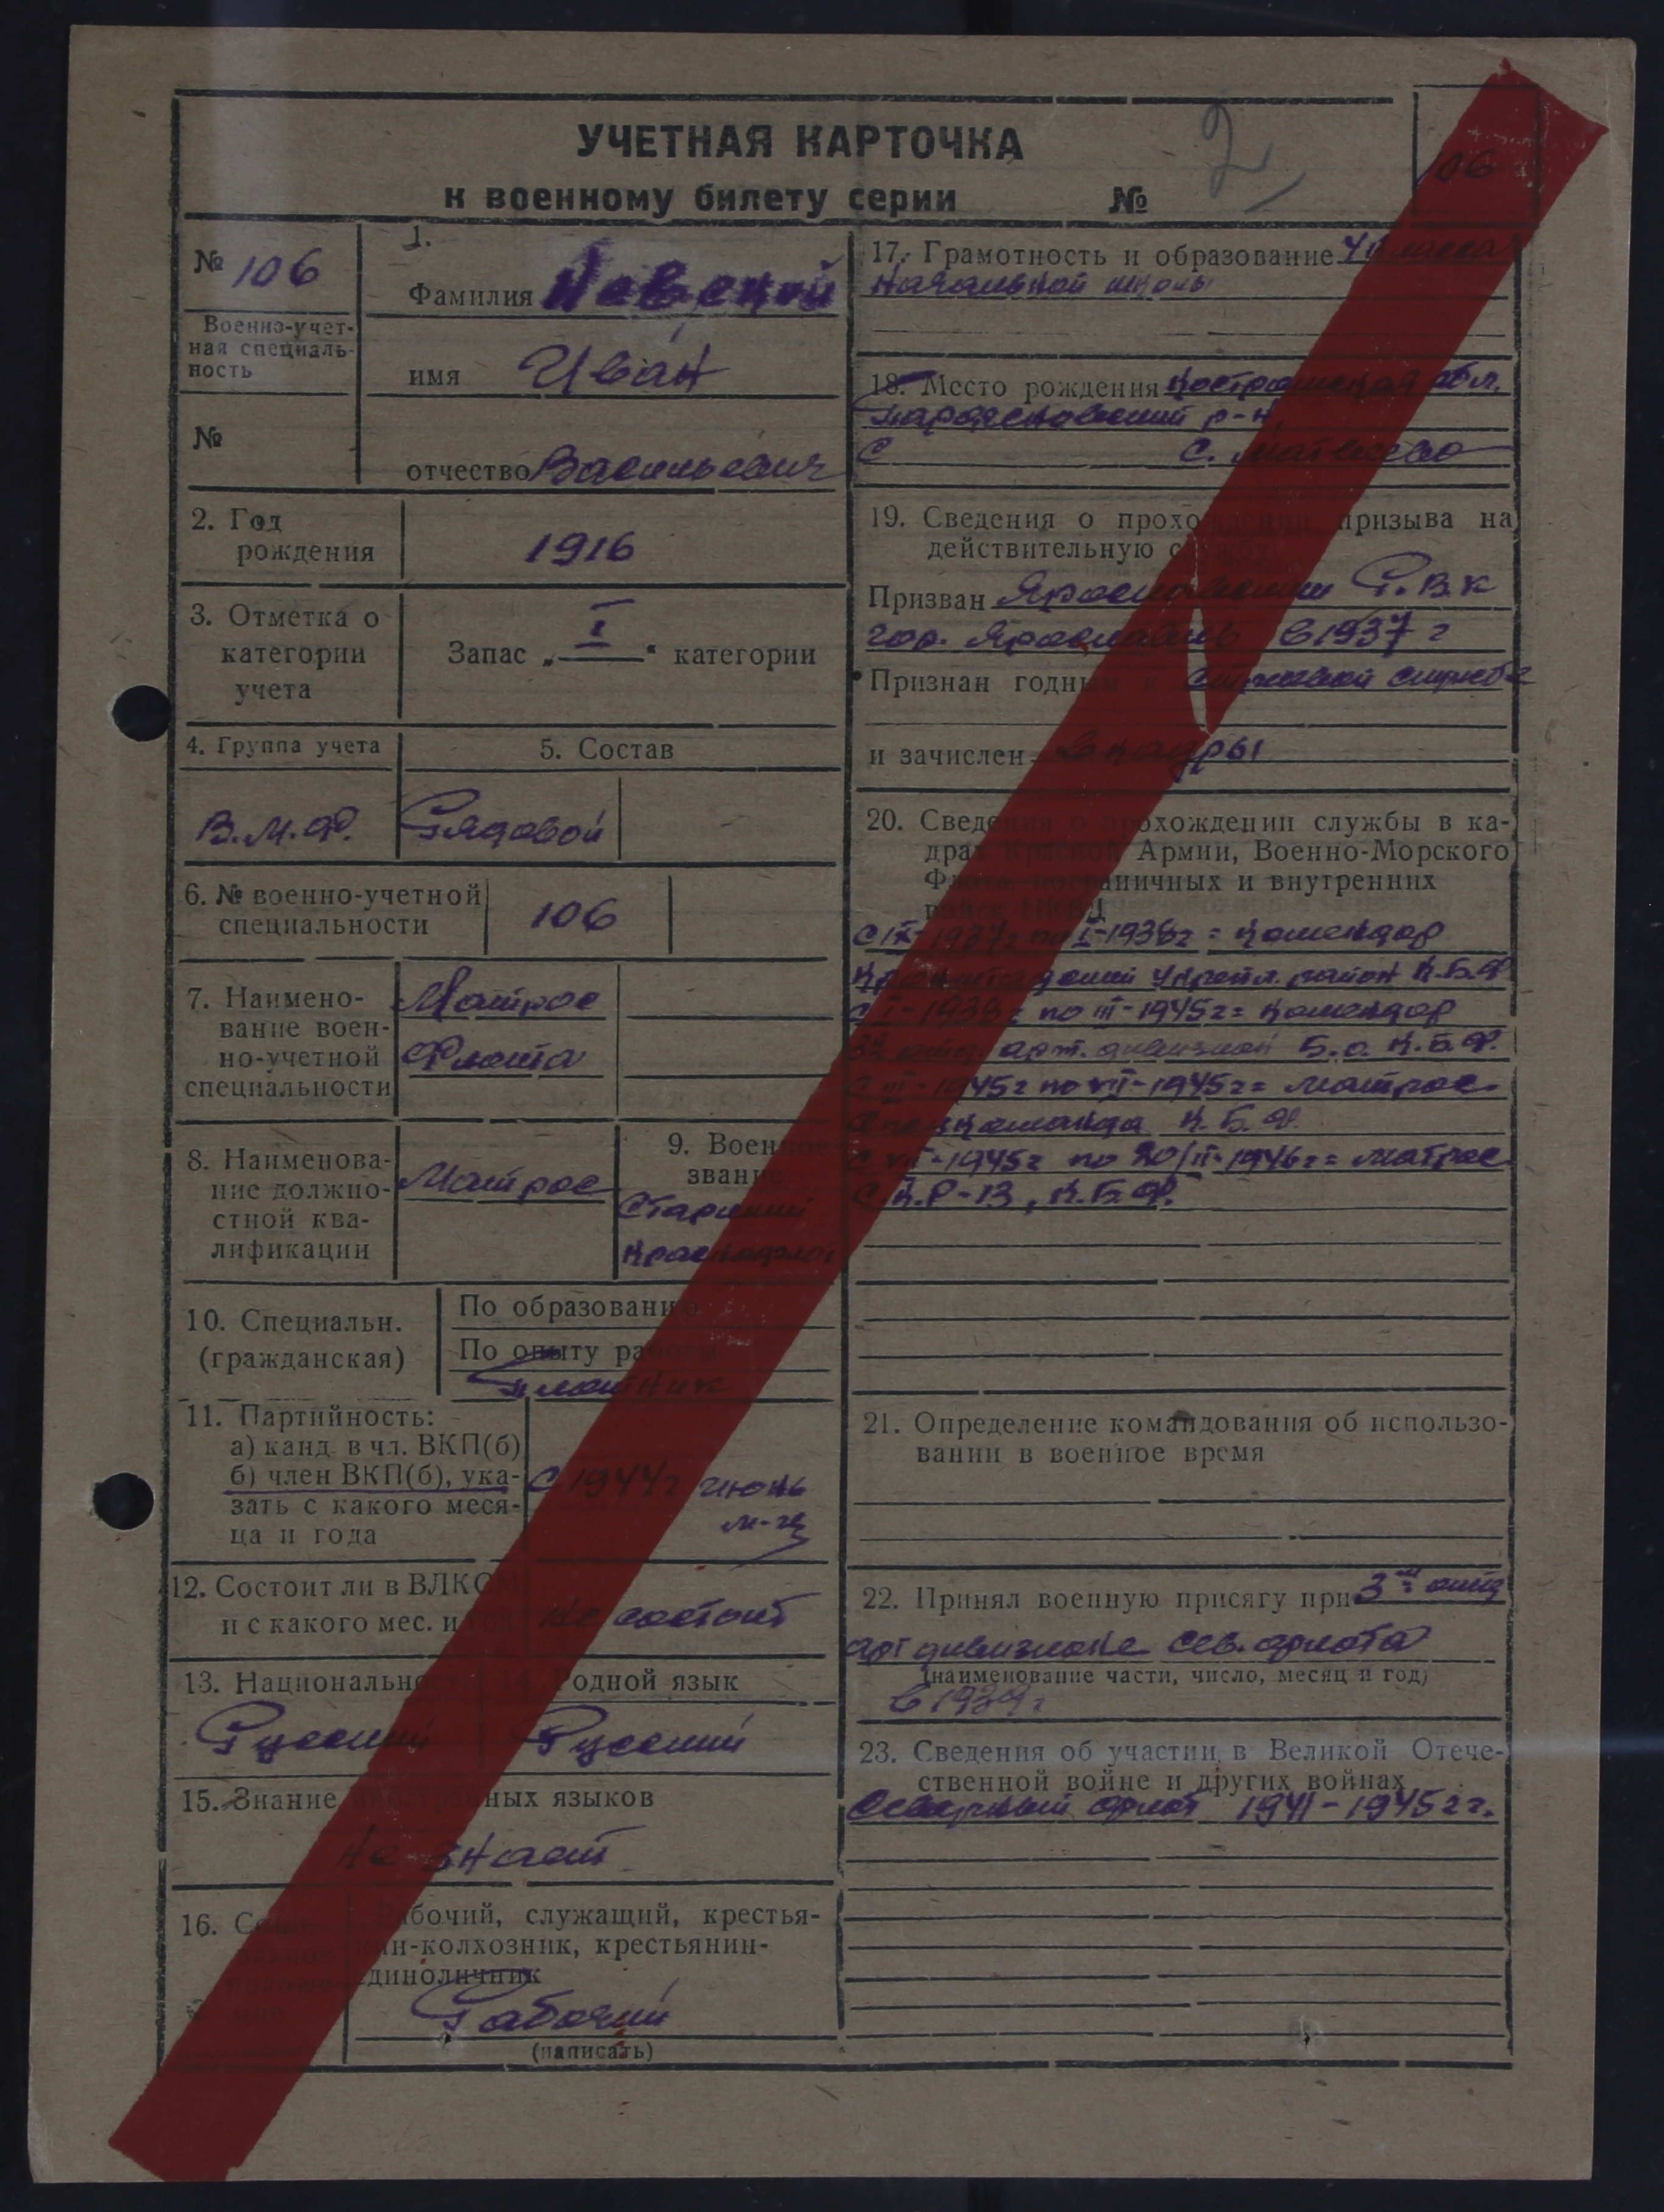 УЧЕТНАЯ КАРТОЧКА
к военному билету серии №
2
106
№ 106
Военно-учет-
ная специаль-
ность
№
1.
Фамилия Невской
имя Иван
отчество Васильевич
2. Год
рождения
1916
3. Отметка о
категории
учета
Запас „ I " категории
4. Группа учета
5. Состав
В.М.Ф.
Рядовой
6. № военно-учетной
специальности
106
7. Наимено-
вание воен-
но-учетной
специальности
Матрос
Флота
8. Наименова-
ние должно-
стной ква-
лификации
Матрос
9. Военное
звание
Старший
10. Специальн.
(гражданская)
По образованию
По опыту работы
Плотник
11. Партийность:
а) канд. в чл. ВКП(б)
б) член ВКП(б), ука-
зать с какого меся-
ца и года
С 1944г июнь
м-ц
12. Состоит ли в ВЛКСМ
и с какого мес. и
не состоит
13. Национальность
Родной язык
Русский
Русский
15. Знание иностранных языков
не знает
16.
Рабочий, служащий, крестья-
нин-колхозник, крестьянин-
единоличник
Рабочий
(написать)
17. Грамотность и образование 4
Начальной школы
18. Место рождения Костромская обл.
р-н
С С.
19. Сведения о прохождении призыва на
действительную службу
Призван Ярославским Р.В.К
гор. Ярославль в 1937 г
Признан годным к строевой службе
и зачислен в кадры
20. Сведения о прохождении службы в ка-
драх Красной Армии, Военно-Морского
Флота, пограничных и внутренних
войск НКВД
С IX-1937г по I-1938г = Комендор
Кронштадский Укрепл. район К.Б.Ф
С I-1938г по III-1945г = Комендор
3й отд. арт. дивизион Б.о. К.Б.Ф.
С III-1945г по VII-1945г = матрос
команда К.Б.Ф.
С VII-1945г по 20/II-1946г = матрос
К.Р-13, К.Б.Ф.
21. Определение командования об использо-
вании в военное время
22. Принял военную присягу при 3-м отд
арт дивизионе Сев. флота
(наименование части, число, месяц и год)
в 1939г
23. Сведения об участии в Великой Отече-
ственной войне и других войнах
Северный флот 1941-1945гг.